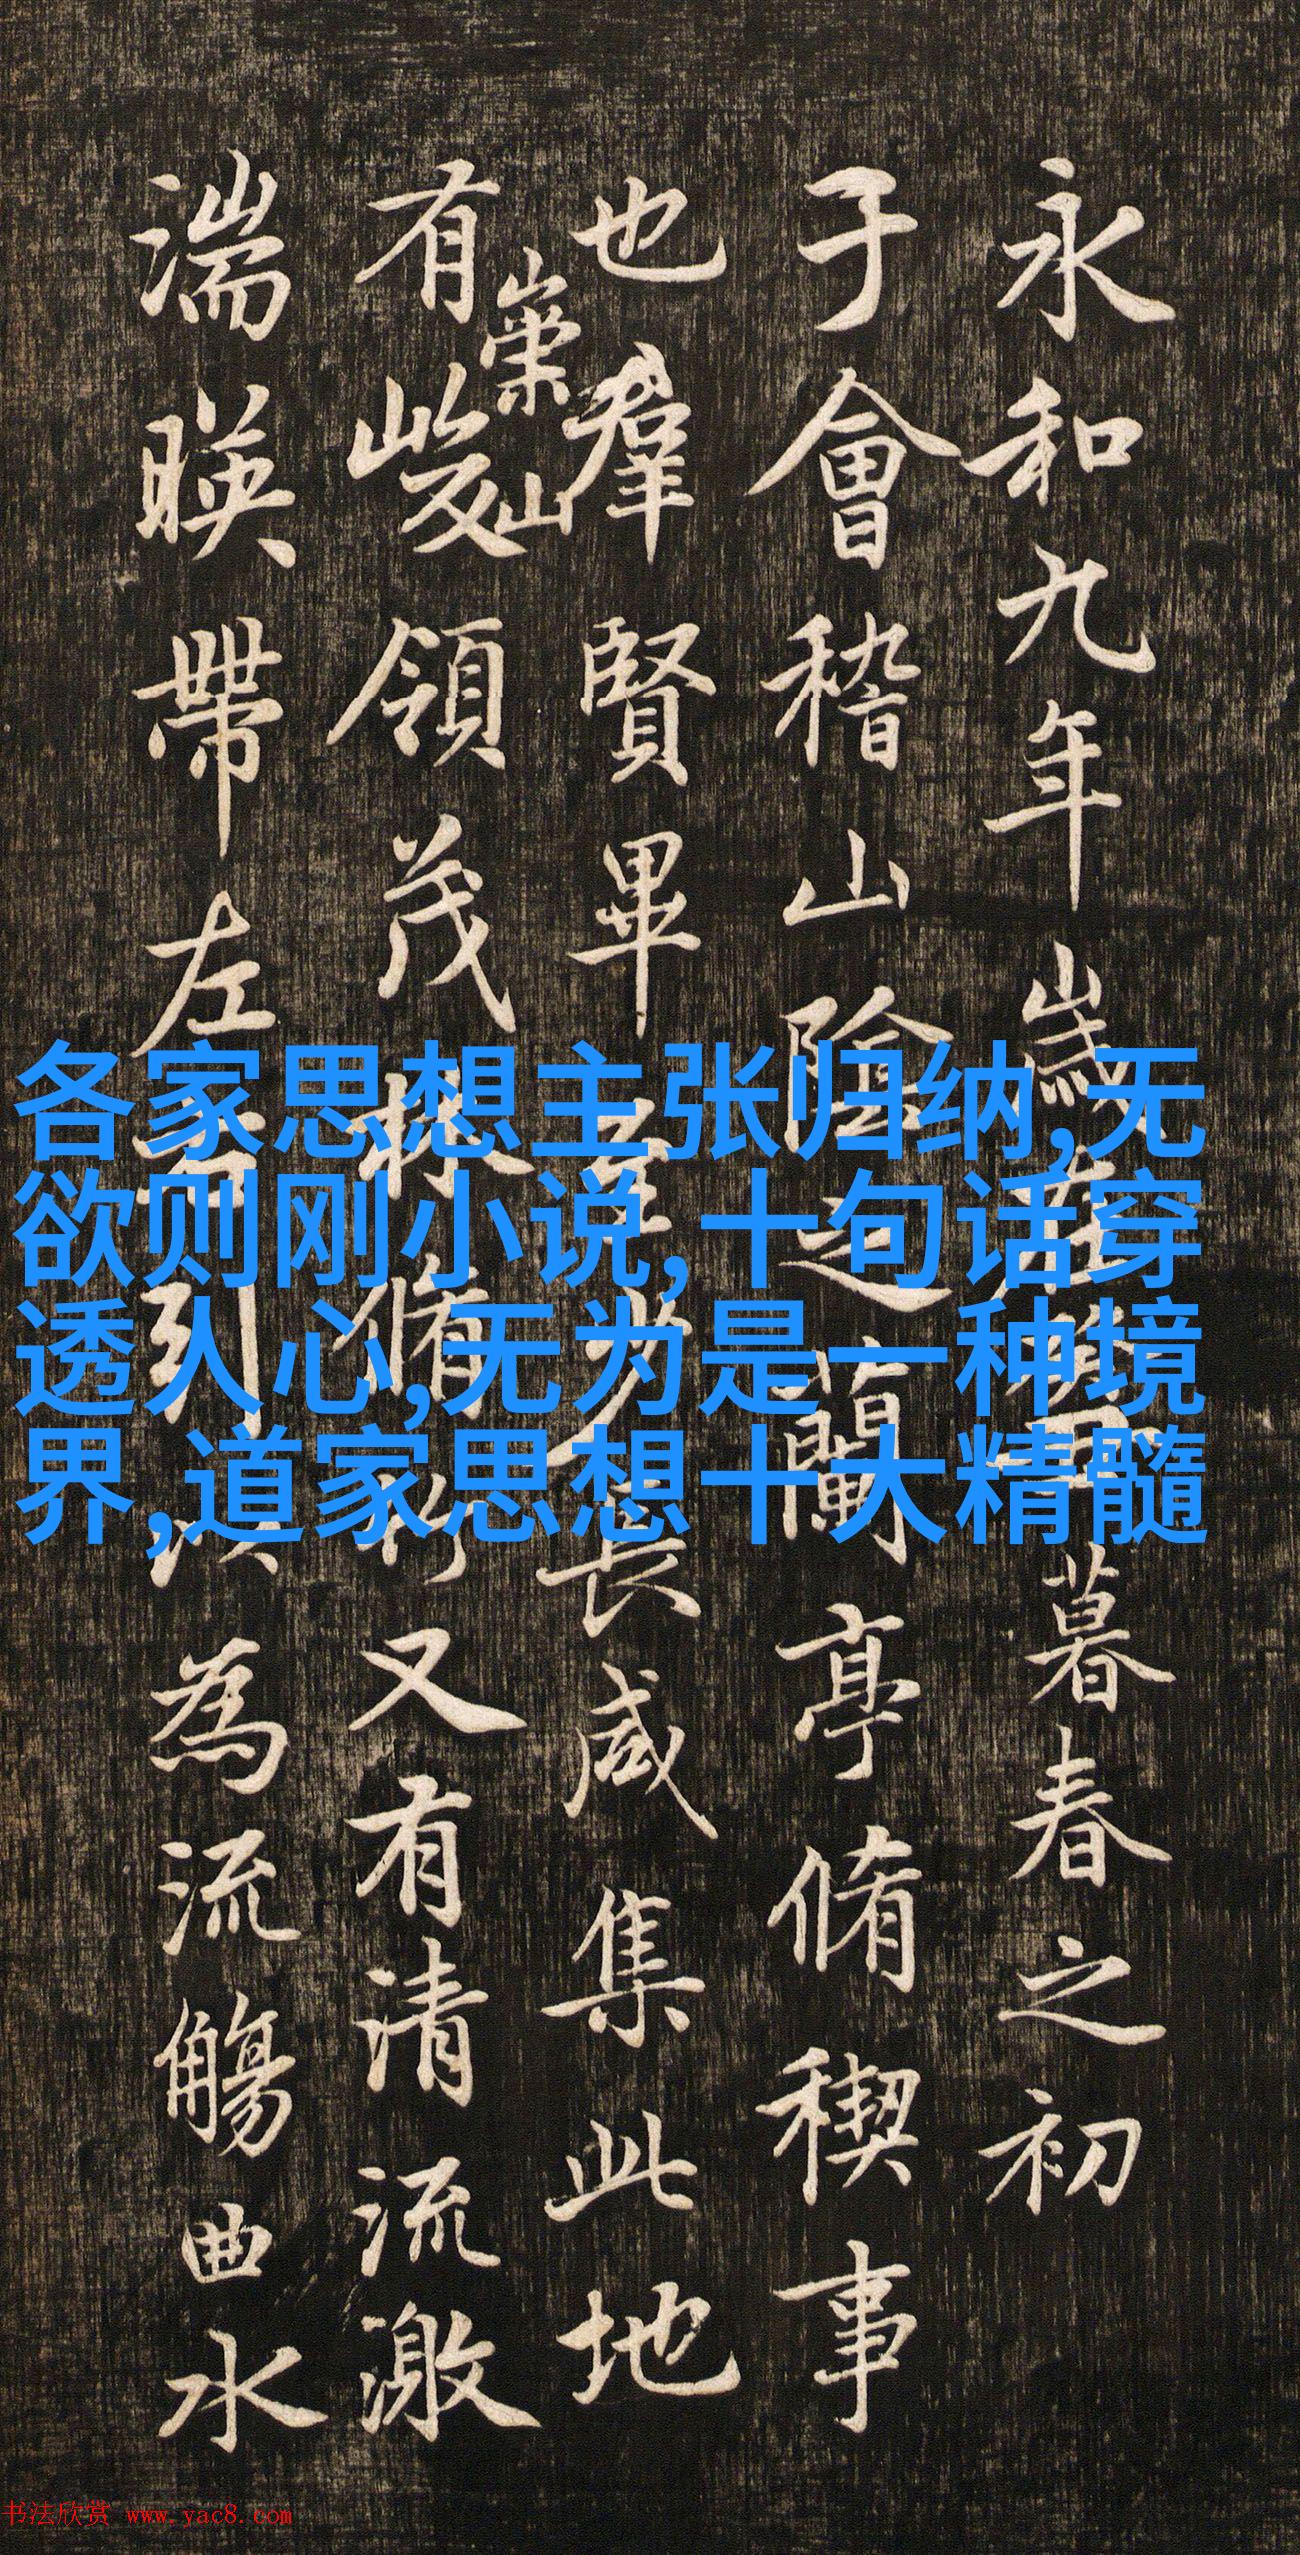 永和九年歲在癸丑暮春之初
于會稽山陰之蘭亭脩稧事
也羣賢畢至少長咸集此地
有崇山峻領茂林脩竹又有清流激
湍暎帶左右引以為流觴曲水
各家思想主张归纳,无
欲则刚小说,十句话穿
透人心,无为是一种境
界,道家思想十大精髓
书法欣赏 www.yac8.com